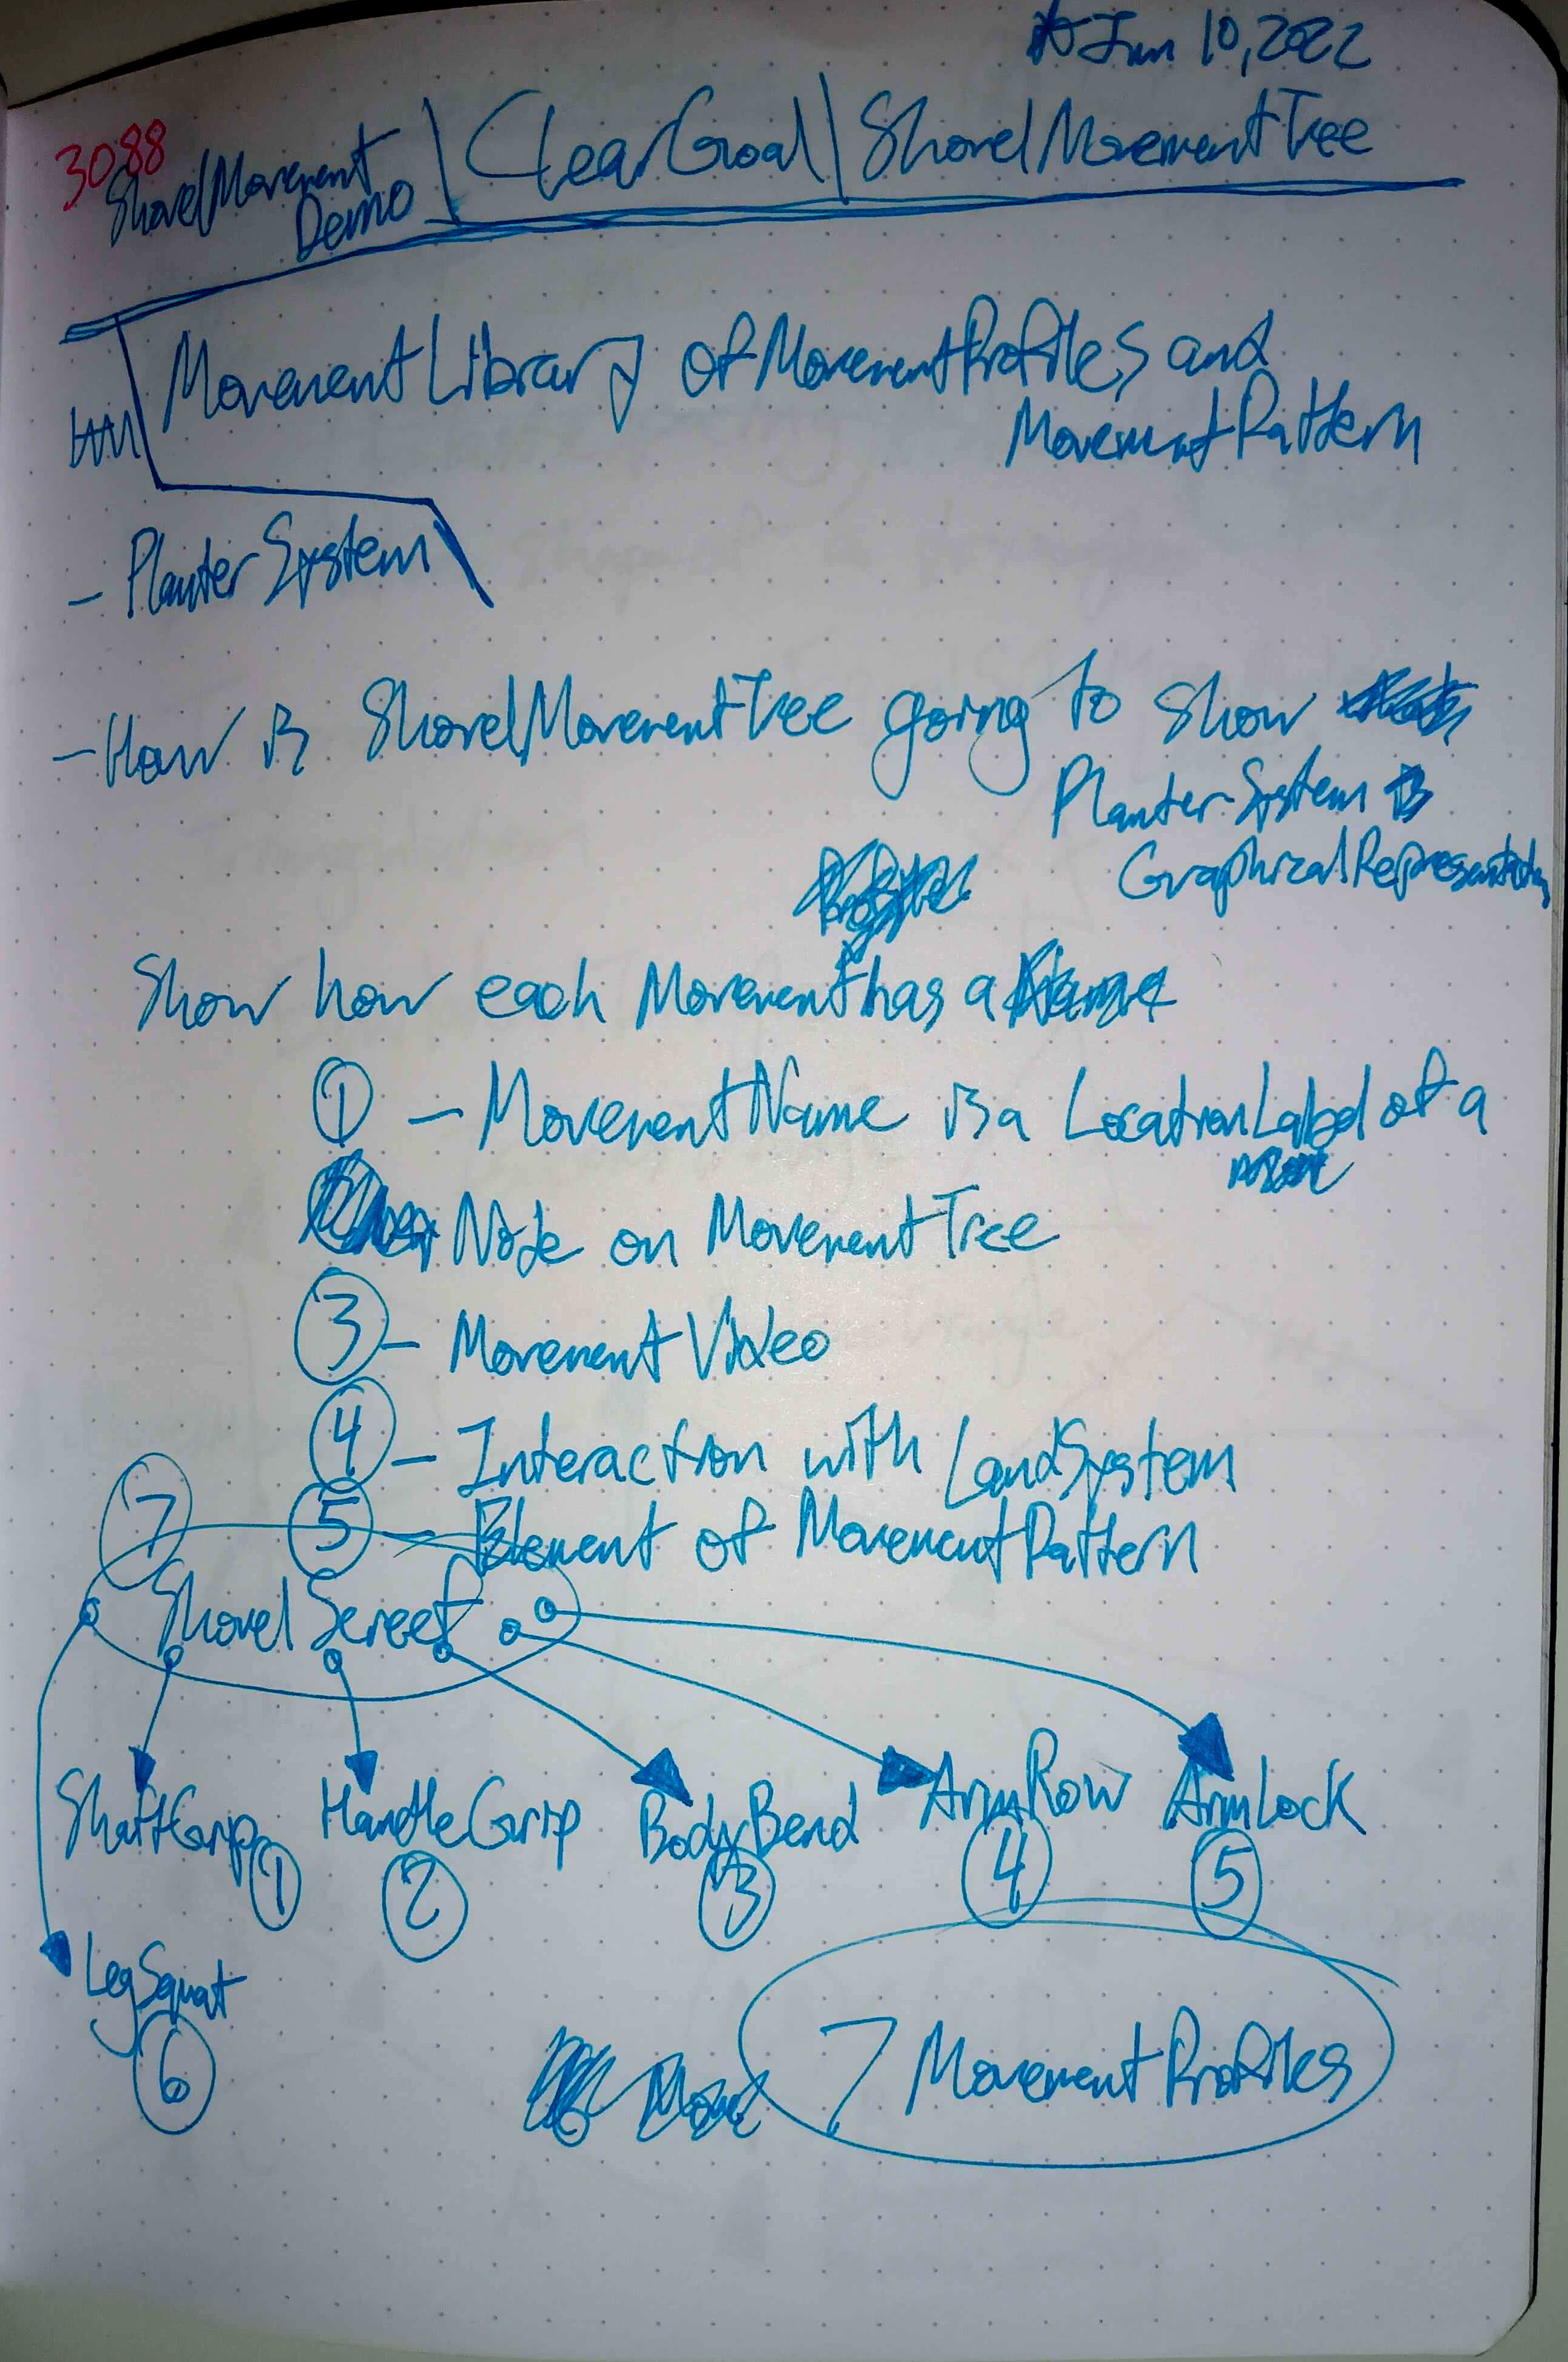 Jun 10, 2022
3088
ShovelMovement Demo | ClearGoal | ShovelMovementTree
MovementLibrary of MovementProfiles and
MovementPattern
- PlanterSystem
- How is ShovelMovementTree going to show
PlanterSystem
GraphicalRepresentation
Show how each Movement has a
① - MovementName is a LocationLabel of a
Node on MovementTree
③ - MovementVideo
④ - Interaction with LandSystem
⑦ ⑤ - Element of MovementPattern
Shovel
ShaftGrip HandleGrip BodyBend ArmRow ArmLock
① ② ③ ④ ⑤
LegSquat
⑥
7 MovementProfiles